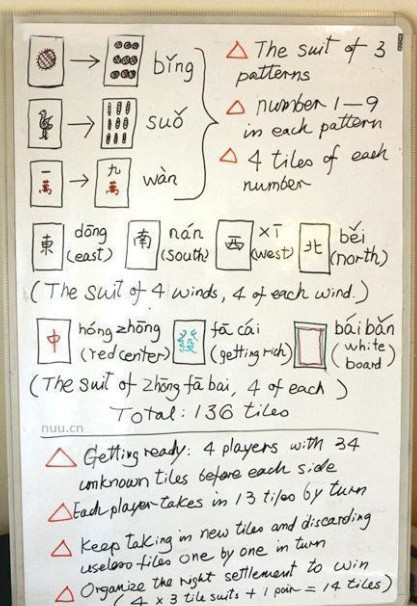 bǐng
suǒ
一萬
九萬
wàn
△ The suit of 3
patterns
△ number 1-9
in each pattern
△ 4 tiles of each
number
東 dōng (east) 南 nán (south) 西 xī (west) 北 běi (north)
(The suit of 4 winds, 4 of each wind.)
中 hóng zhōng (red center) 發 fā cái (getting rich) bái bǎn (white board)
(The suit of zhōng fā bai, 4 of each)
Total: 136 tiles
nuu.cn
△ Getting ready: 4 players with 34
unknown tiles before each side
△ Each player takes in 13 tiles by turn
△ Keep taking in new tiles and discarding
useless tiles one by one in turn
△ Organize the right settlement to win
(4 x 3 tile suits + 1 pair = 14 tiles)